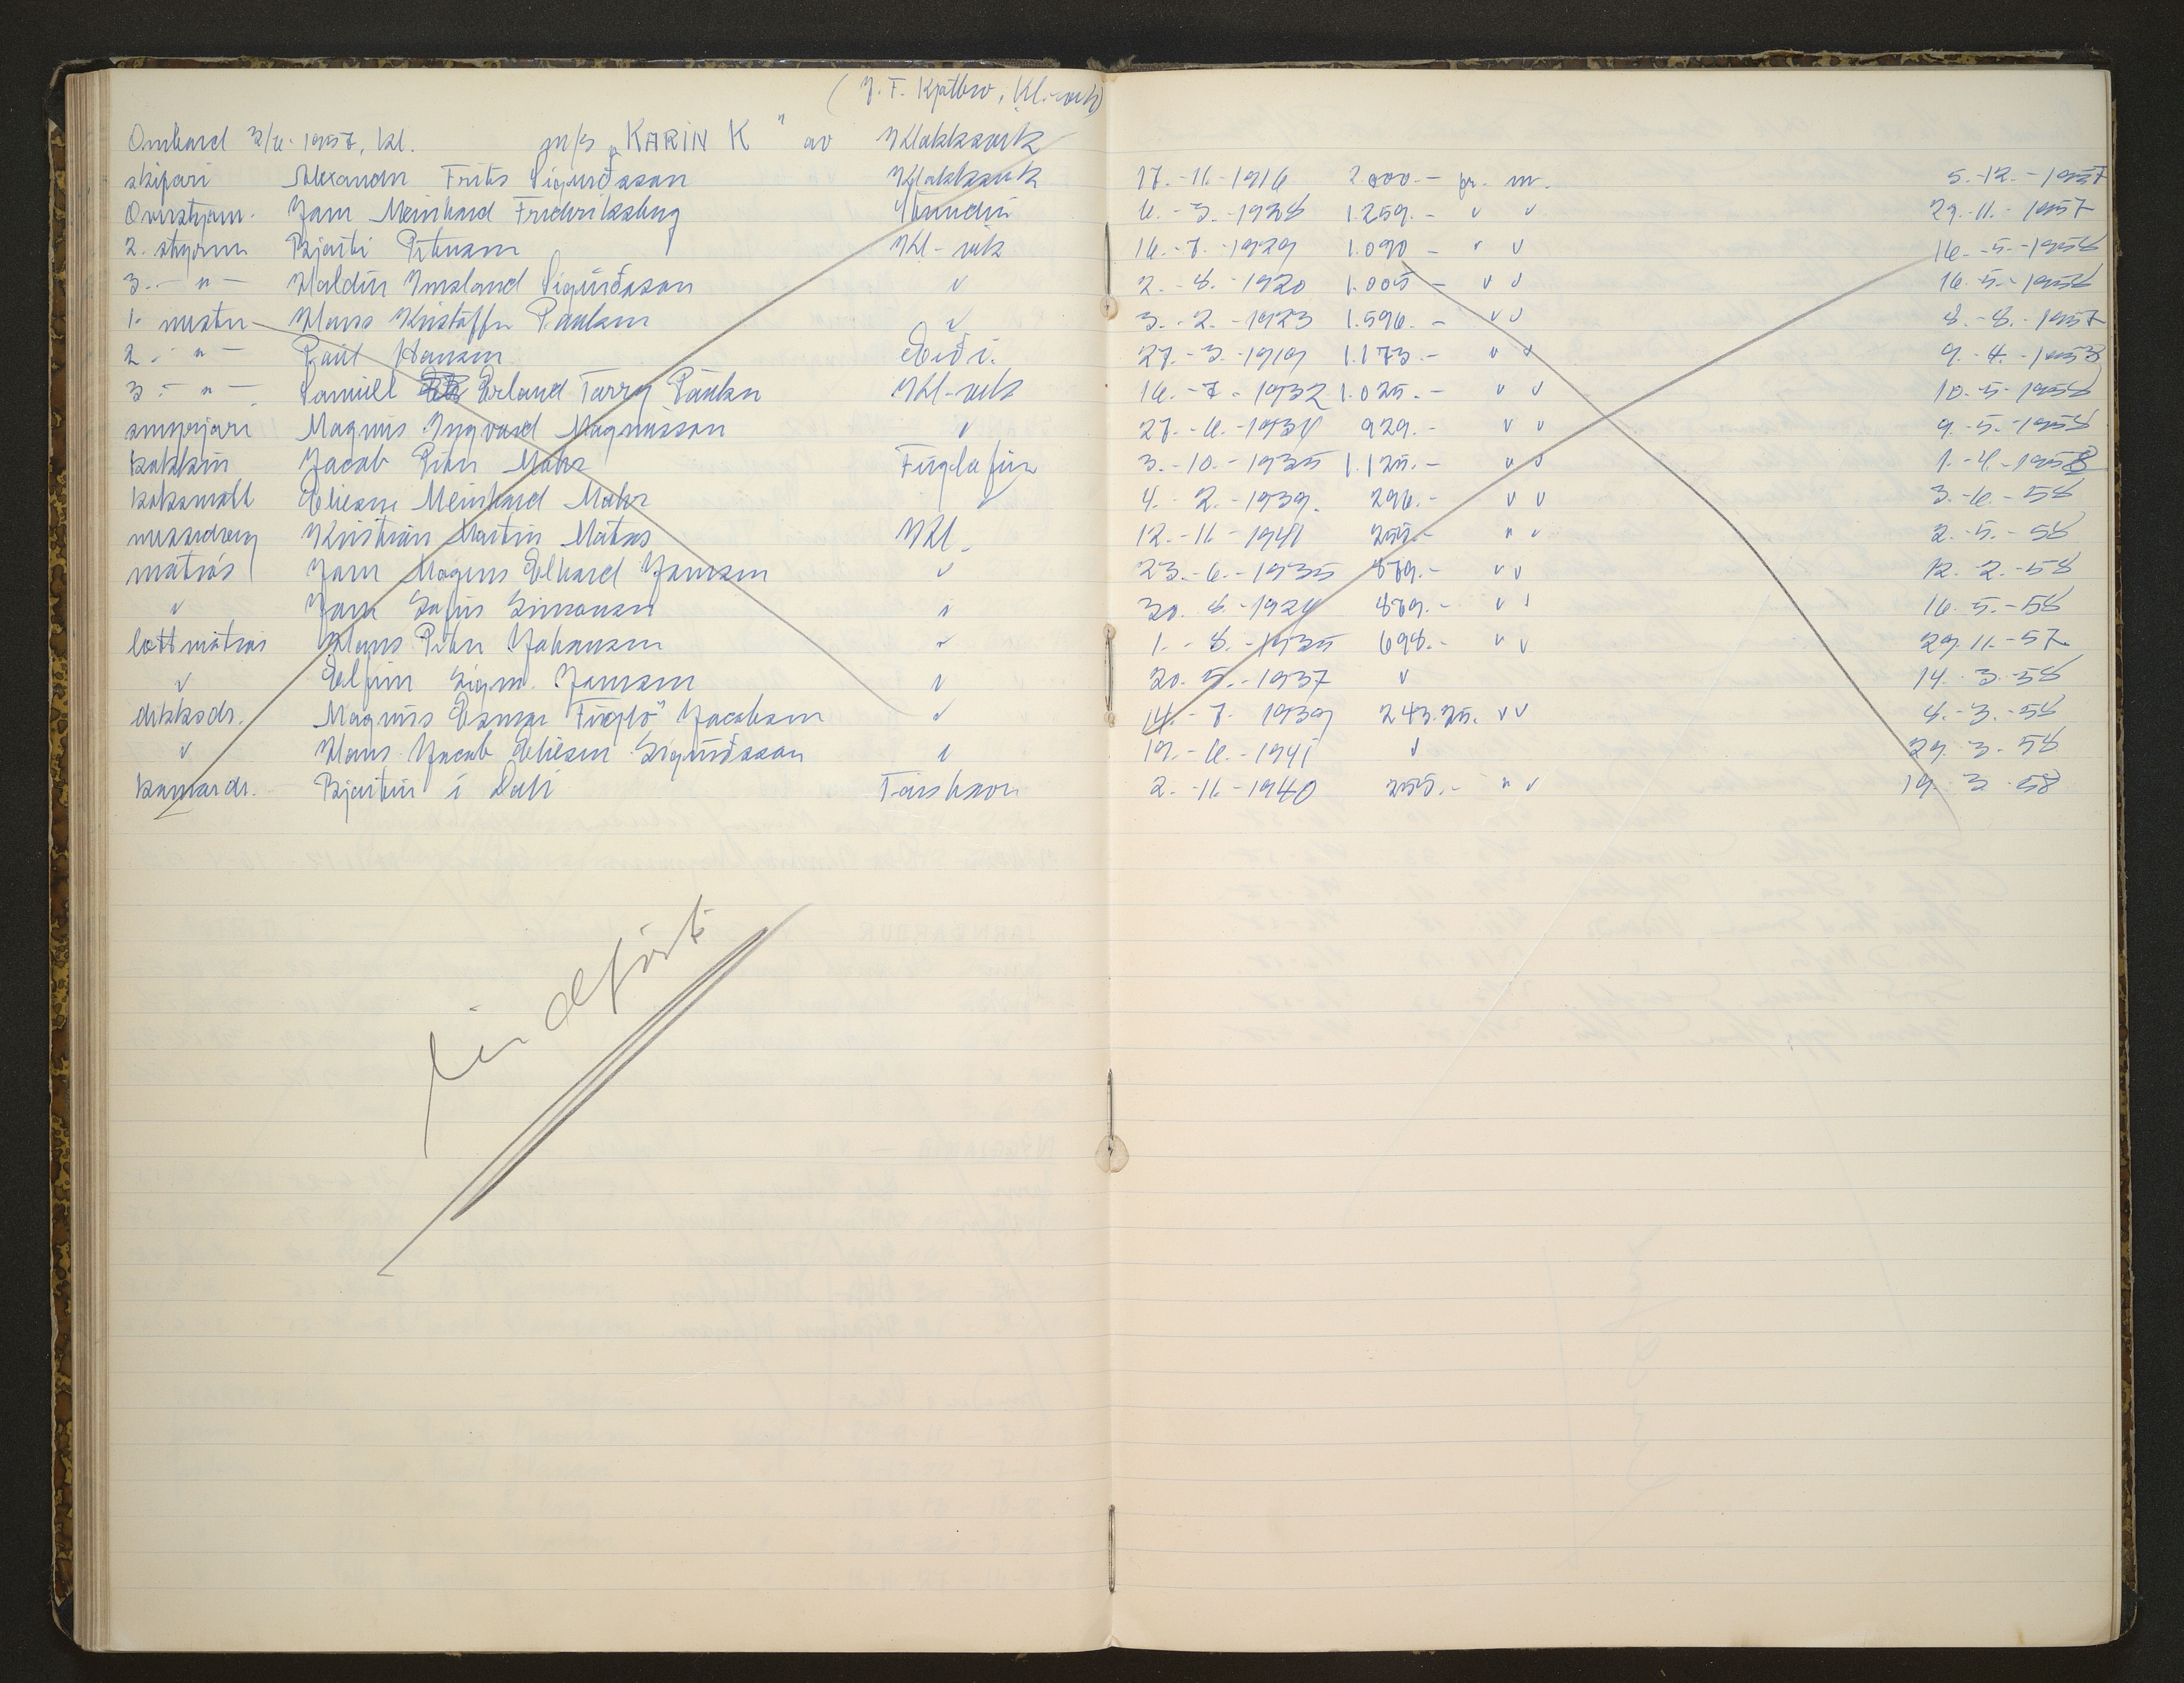 (J. F. Kjølbro, Kl.-vík)
Ombord 3/6. 1957, kl. m/s „KARIN K" av Klakksvík
skipari Alexandur Frits Sigurðsson Klakksvík 17.-11.-1916 2.000.- pr. m. 5.-12.-1957
Overstyrm. Jorn Meinhard Fridriksberg Strendur 6.-3.-1928 1.259.- v v 29.-11.-1957
2. styrm Bjarti Petersen Kl-vík 16.-7.-1929 1.090 - v v 16.-5.-1958
3.- " - Haldur Imsland Sigurðsson v 2.-8.-1920 1.005 - v v 16.-5.-1958
1. mester Hans Kristoffur Paulsen v 3.-2.-1923 1.596.- v v 8.-8.-1957
2.- " - Poul Hansen Eiði. 27.-3.-1919 1.173.- v v 9.-4.-1958
3.- " - Samuell Erland Tarry Paulsen Kl-vík 16.-7.-1932 1.025.- v v 10.-5-1958
smyrjari Magnus Ingvard Magnussen v 27.-6.-1934 929.- v v 9.-5.-1958
kokkur Jacob Peter Mohr Fuglafjør 3.-10.-1935 1.125.- v v 1.-4.-1958
koksmatt Eliesar Meinhard Mohr v 4.-2.-1939. 296.- v v 3.-6.-58
messedreng Kristian Martin Matras Kl. 12.-11-1941 255.- " v 2.-5.-58
matrós Jorn Magnus Elhard Joensen v 23.-6.-1935 879.- v v 12.-2.-58
v Jorn Sofus Simonsen v 30.8.-1924 879.- v v 16.5.-58
lettmatros Hans Peter Johansen v 1.-8.-1935 698.- v v 29.11.-57.
v Elfinn Sigm. Joensen v 20.5.-1937 v 14.3.58
dekksdr. Magnus Dánjal "Fuglø" Jacobsen v 14.-7.1939 243.25. v v 8.-3.-58
v Hans Jacob Eliesar Sigurðsson v 19.-6.-1941 v 29.3.58
kamardr. Bjartur í Dali Tórshavn 2.-11-1940 255.- " v 19.3.58